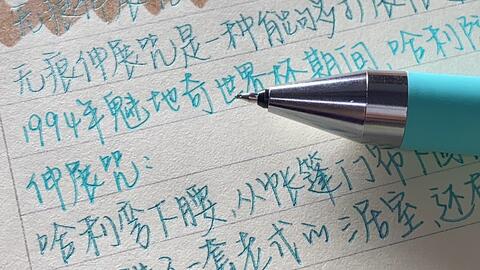 无痕伸展咒是一种能够扩展
1994年魁地奇世界杯期间,哈利
伸展咒:
哈利弯下腰,从帐篷门帘下
一套老式的三居室,还有